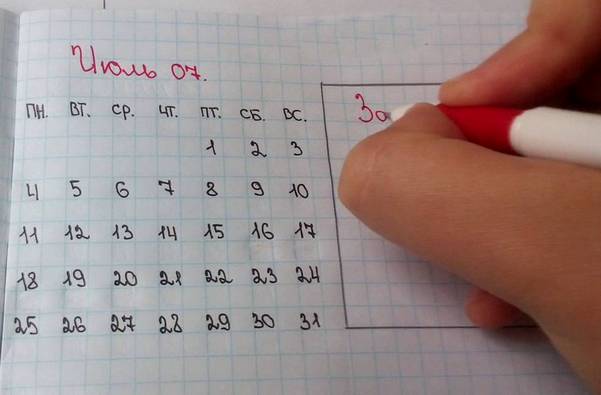 Июль 07.
ПН. ВТ. СР. ЧТ. ПТ. СБ. ВС.
1 2 3
4 5 6 7 8 9 10
11 12 13 14 15 16 17
18 19 20 21 22 23 24
25 26 27 28 29 30 31
За